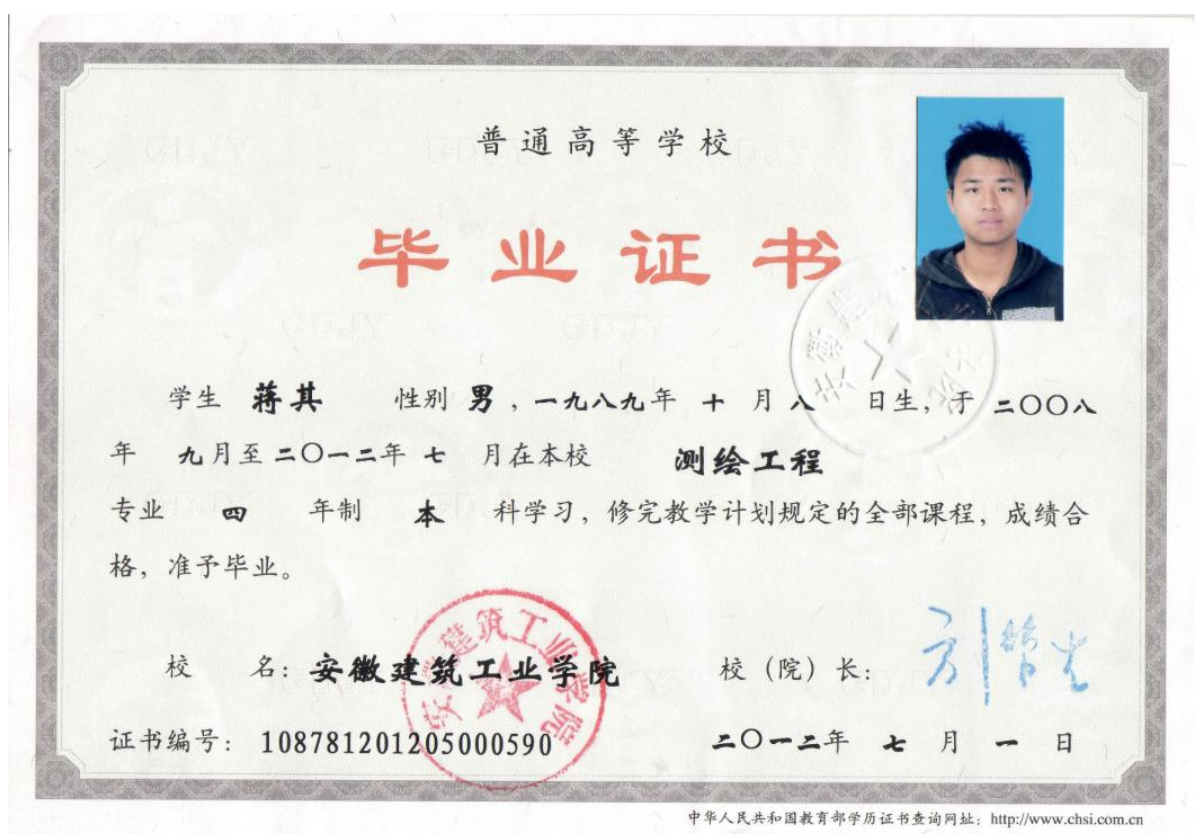 普通高等学校
毕业证书
学生 蒋其 性别 男，一九八九年 十 月 八 日生，于 二〇〇八
年 九月至二〇一二年 七 月在本校 测绘工程
专业 四 年制 本 科学习，修完教学计划规定的全部课程，成绩合
格，准予毕业。
安徽建筑工业学院
校 名：安徽建筑工业学院 校（院）长：
证书编号：108781201205000590 二〇一二年 七 月 一 日
中华人民共和国教育部学历证书查询网址：http://www.chsi.com.cn